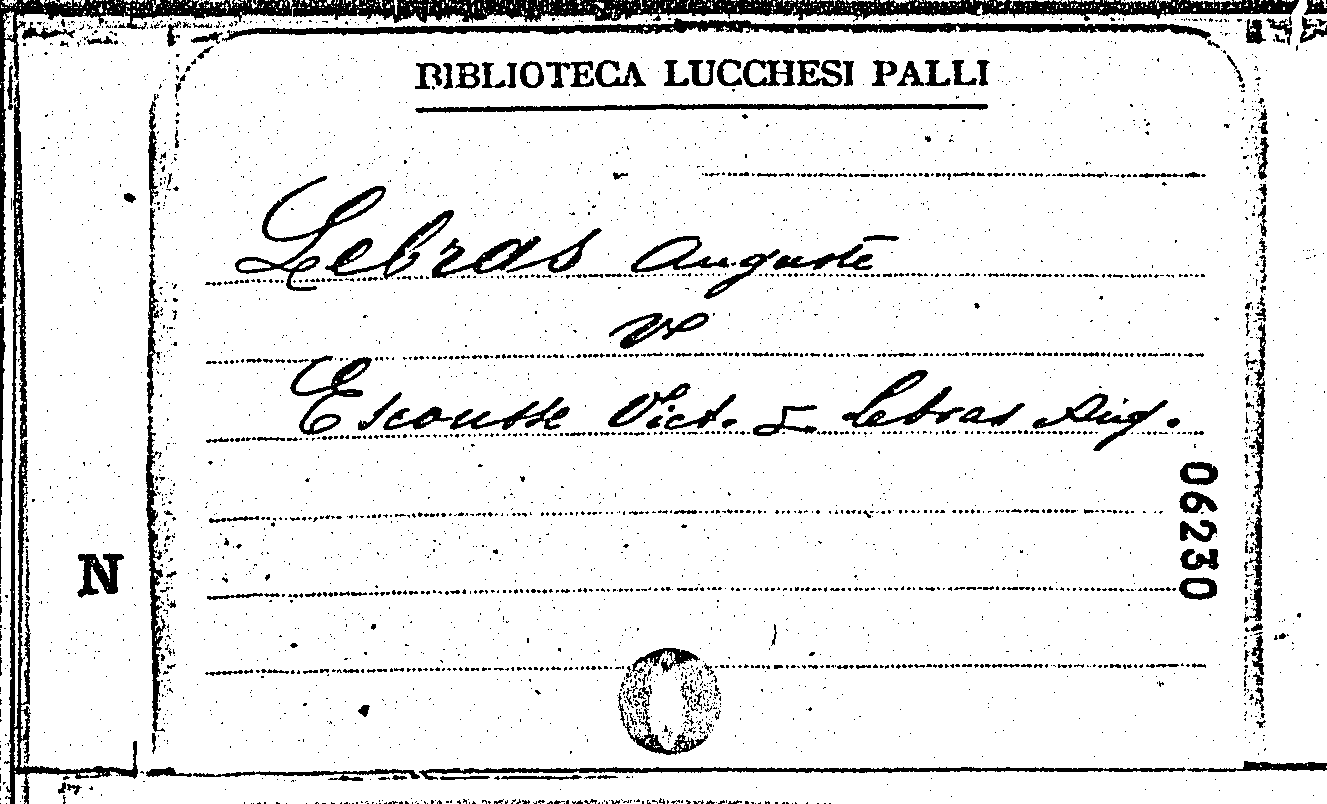 BIBLIOTECA LUCCHESI PALLI
Lebras Auguste
Escousse Vict. & Lebras Aug.
06230
N